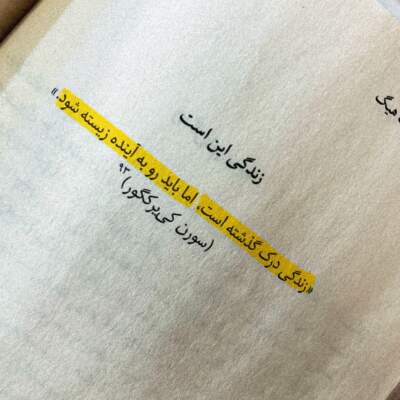 هیگ
زندگی این است
«زندگی درک گذشته است، اما باید رو به آینده زیسته شود.»
۹۳
(سورن کی‌یرکگور)